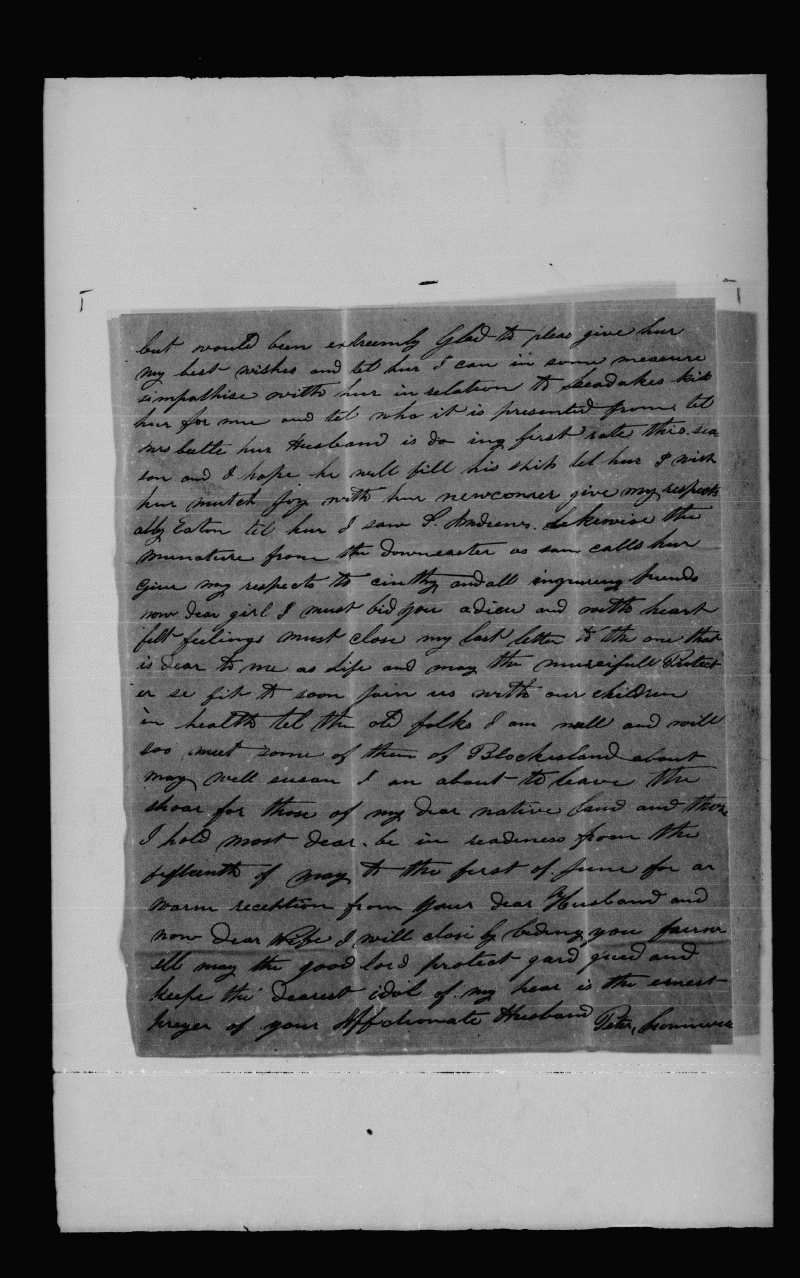 but would been extreemly Glad to pleas give hur
my best wishes and tel hur I can in some measure
simpathise with hur in relation to headakes kis
hur for me and tel who it is presented from tel
mrs hur Husband is do ing first rate this sea
son and I hope he will fill his ship tel hur I wish
hur mutch joy with hur newcomer give my respects
Eaton tel hur I saw S. Andrews. Likewise the
from the downeaster as sam calls hur
Give my respects to cinthy and all inquiring friends
now dear girl I must bid you adieu and with heart
felt feelings must close my last letter to the one that
is dear to me as Life and may the mercifull Protect
er se fit to soon join us with our children
in health tel the old folks I am well and will
soo meet some of them of Blockisland about
may well susan I an about to leave the
shoar for those of my dear native land and those
I hold most dear. be in readiness from the
fifteenth of may to the first of June for ar
warm reception from your dear Husband and
now Dear Wife I will close by biding you fairw
ell may the good lord protect gard guid and
keepe the dearest idol of my hear is the ernest
preyer of your Affectionate Husband Peter,